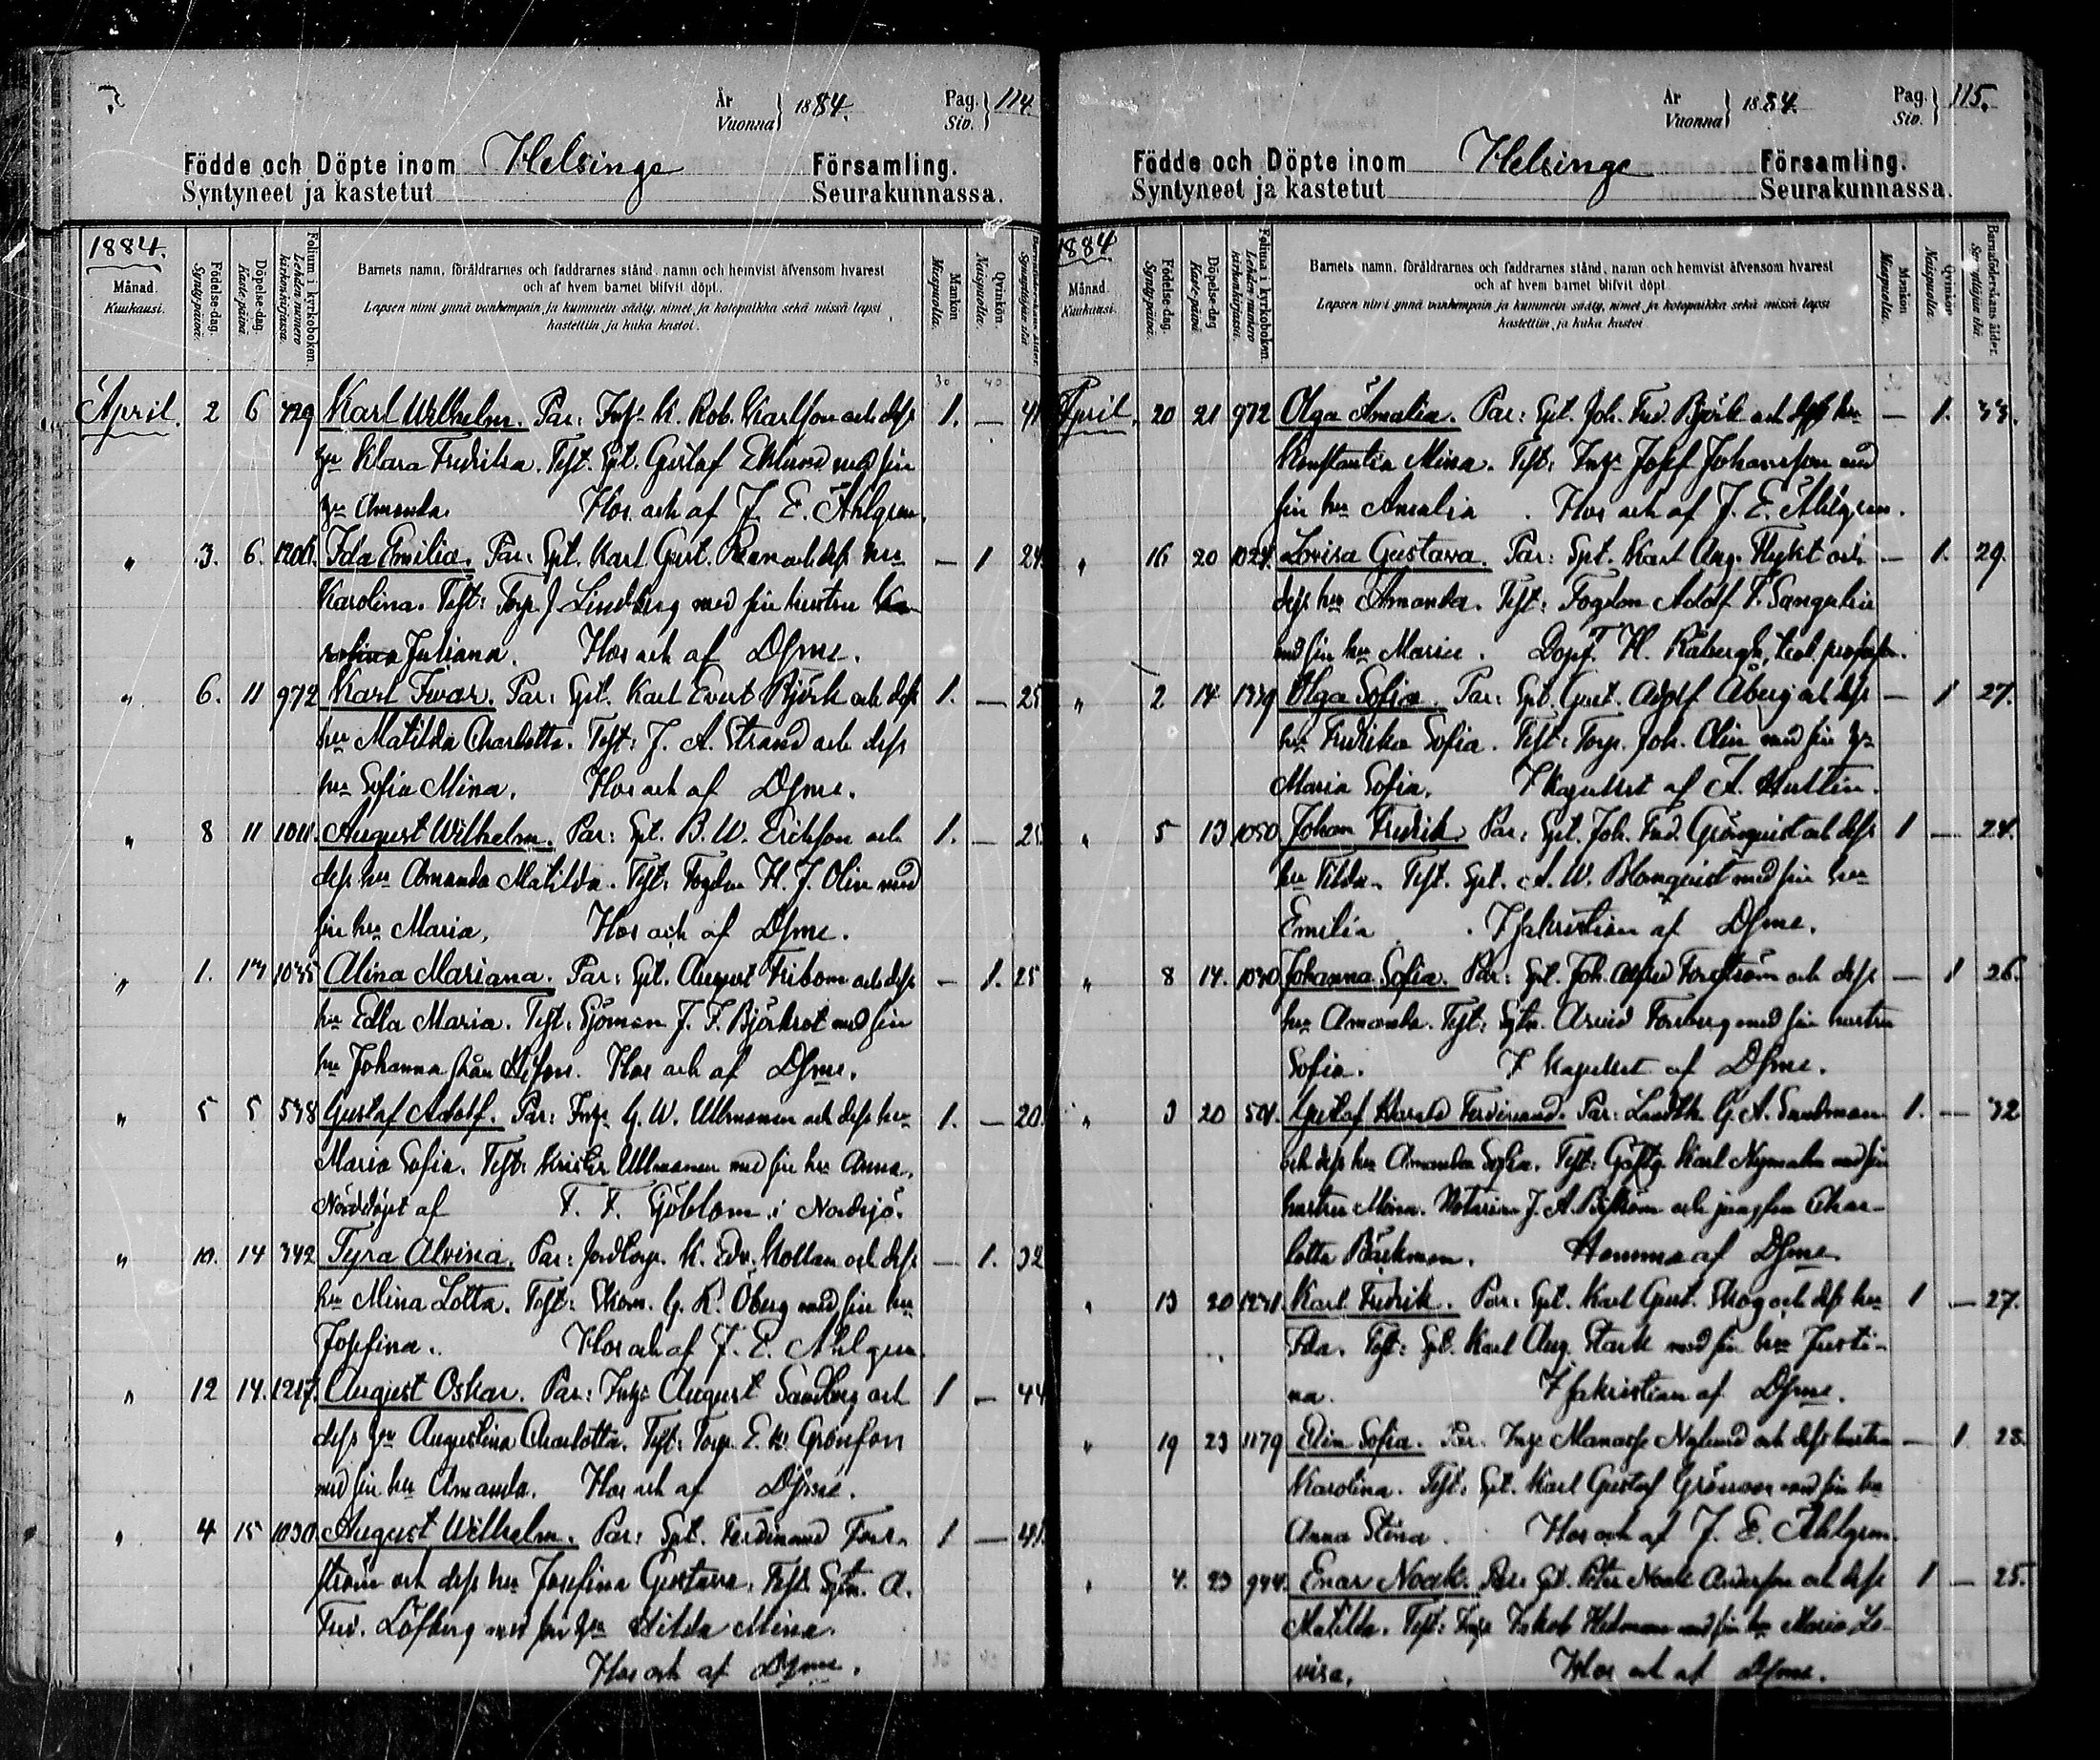 År
Vuonna } 1884.
Pag.
Siv. } 114.
Födde och Döpte inom Helsinge Församling.
Syntyneet ja kastetut Seurakunnassa.
1884.
Månad.
Kuukausi.
Födelse-dag.
Synty-päivä.
Döpelse-dag.
Kaste-päivä.
Folium i kyrkoboken.
Lehden numero kirkonkirjassa.
Barnets namn, föräldrarnes och faddrarnes stånd, namn och hemvist äfvensom hvarest
och af hvem barnet blifvit döpt.
Lapsen nimi ynnä vanhempain ja kummein sääty, nimet ja kotopaikka sekä missä lapsi
kastettiin, ja kuka kastoi.
Mankön
Miespuolta.
Qvinkön.
Naispuolta.
30 40
April. 2 6 729 Karl Wilhelm. Par: Inhs K. Rob. Karlsson och dess 1. — 41
Klara Fredrika. Test. Spt. Gustaf Eklund med sin
Amanda. Hos och af J. E. Åhlgren.
" 3. 6. Ida Emilia. Par: Spt. Karl Gust. och dess hu — 1 24
Karolina. Test: Torp. J Lindberg med sin hustru Ka
rolina Juliana. Hos och af Dsme.
" 6. 11 972 Karl Ivar. Par: Spt. Karl Evert Björk och dess 1. — 25
hu Matilda Charlotta. Test: J. A. Strand och dess
hu Sofia Mina. Hos och af Dsme.
" 8 11 1011. August Wilhelm. Par: Spt. B. W. Erikson och 1. —
dess hu Amanda Matilda. Test: Fogden H. J. Olin med
sin hu Maria. Hos och af Dsme.
" 1. 13 1035 Alina Mariana. Par: Spt. August Fribom och dess — 1. 25
hu Edla Maria. Test: Sjöman J. F. Björkrot med sin
hu Johanna från Hos och af Dsme.
" 5 5 538 Gustaf Adolf. Par: Inhs G. W. Ullmanen och dess hu 1. — 20.
Maria Sofia. Test: Krister Ullmanen med sin hu Anna.
Nöddöpt af F. F. Sjöblom i Nordsjö.
" 10. 14 342 Tyra Alvina. Par: Jordtorp. K. Edv. och dess — 1. 32
hu Mina Lotta. Test: Skom. G. R. Öberg med sin hu
Josefina. Hos och af J. E. Ahlgren.
" 12 14. 1217. August Oskar. Par: Inhs August Sandberg och 1 — 44
dess hu Augustina Charlotta. Test: Torp. E. W. Grönson
med sin hu Amanda. Hos och af Dsme.
" 4 15 1030. August Wilhelm. Par: Spt. Ferdinand Fors- 1 — 41.
ström och dess hu Josefina Gustava. Test. Sytn. A.
Fred. Löfberg med sin hu Hilda Mina.
Hos och af Dsme.
År
Vuonna } 1884.
Pag.
Siv. } 115.
Födde och Döpte inom Helsinge Församling.
Syntyneet ja kastetut Seurakunnassa.
1884
Månad.
Kuukausi.
Födelse-dag.
Synty-päivä.
Döpelse-dag
Kaste-päivä.
Folium i kyrkoboken.
Lehden numero kirkonkirjassa.
Barnets namn, föräldrarnes och faddrarnes stånd, namn och hemvist äfvensom hvarest
och af hvem barnet blifvit döpt.
Lapsen nimi ynnä vanhempain ja kummein sääty, nimet ja kotopaikka sekä missä lapsi
kastettiin, ja kuka kastoi.
Mankön
Miespuolta.
Qvinkön
Naispuolta.
Barnaföderskans ålder.
Synnyttäjän ikä.
April. 20 21 972 Olga Amalia. Par: Spt. Joh. Fred. Björk och dess hu — 1. 33.
Konstantia Mina. Test: Inhs Josef Johansson med
sin hu Amalia. Hos och af J. E. Åhlgren.
" 16 20 1024. Lovisa Gustava. Par: Spt. Karl Aug. Flykt och — 1. 29.
dess hu Amanda. Test: Fogden Adolf F. Sangelin
med sin hu Marie. Döpt. H. Råbergh, teol. professor.
" 2 14 1339 Olga Sofia. Par: Spt. Gust. Adolf Åberg och dess — 1 27.
hu Fredrika Sofia. Test: Torp. Joh. Olin med sin hu
Maria Sofia. I kapellet af A. Huttin.
" 5 13 1050 Johan Fredrik. Par: Spt. Joh. Fred. Grönqvist och dess 1 — 24.
hu Tilda. Test. Spt. A. W. Blomqvist med sin hu
Emilia. I sakristian af Dsme.
" 8 14. 1030 Johanna Sofia. Par: Spt. Joh. Alfred Forsström och dess — 1 26.
hu Amanda. Test: Sytn. Arvid Forsberg med sin hustru
Sofia. I kapellet af Dsme.
" 3 20 501. Gustaf Harald Ferdinand. Par: Landtbr. G. A. Sandman 1. — 32
och dess hu Amanda Sofia. Test: Gästg. Karl Nyman med sin
hustru Mina. Notarien J. A. och jungfru Char-
lotta Bäckman. Hemma af Dsme.
" 13 20 1241. Karl Fredrik. Par: Spt. Karl Gust. Skog och dess hu 1 — 27.
Ida. Test: Spt. Karl Aug. Stark med sin hu Justi-
na. I sakristian af Dsme.
" 19 23 1179 Elin Sofia. Par. Inhs Manasse Nylund och dess hustru — 1 28.
Karolina. Test: Spt. Karl Gustaf Grönroos med sin hu
Anna Stina. Hos och af J. E. Åhlgren.
" 4. 23 944. Enar Noak. Par: Spt. Peter Noak Anderson och dess 1 — 25.
Matilda. Test: Inhs Jakob Hedman med sin hu Maria Lo-
visa. Hos och af Dsme.